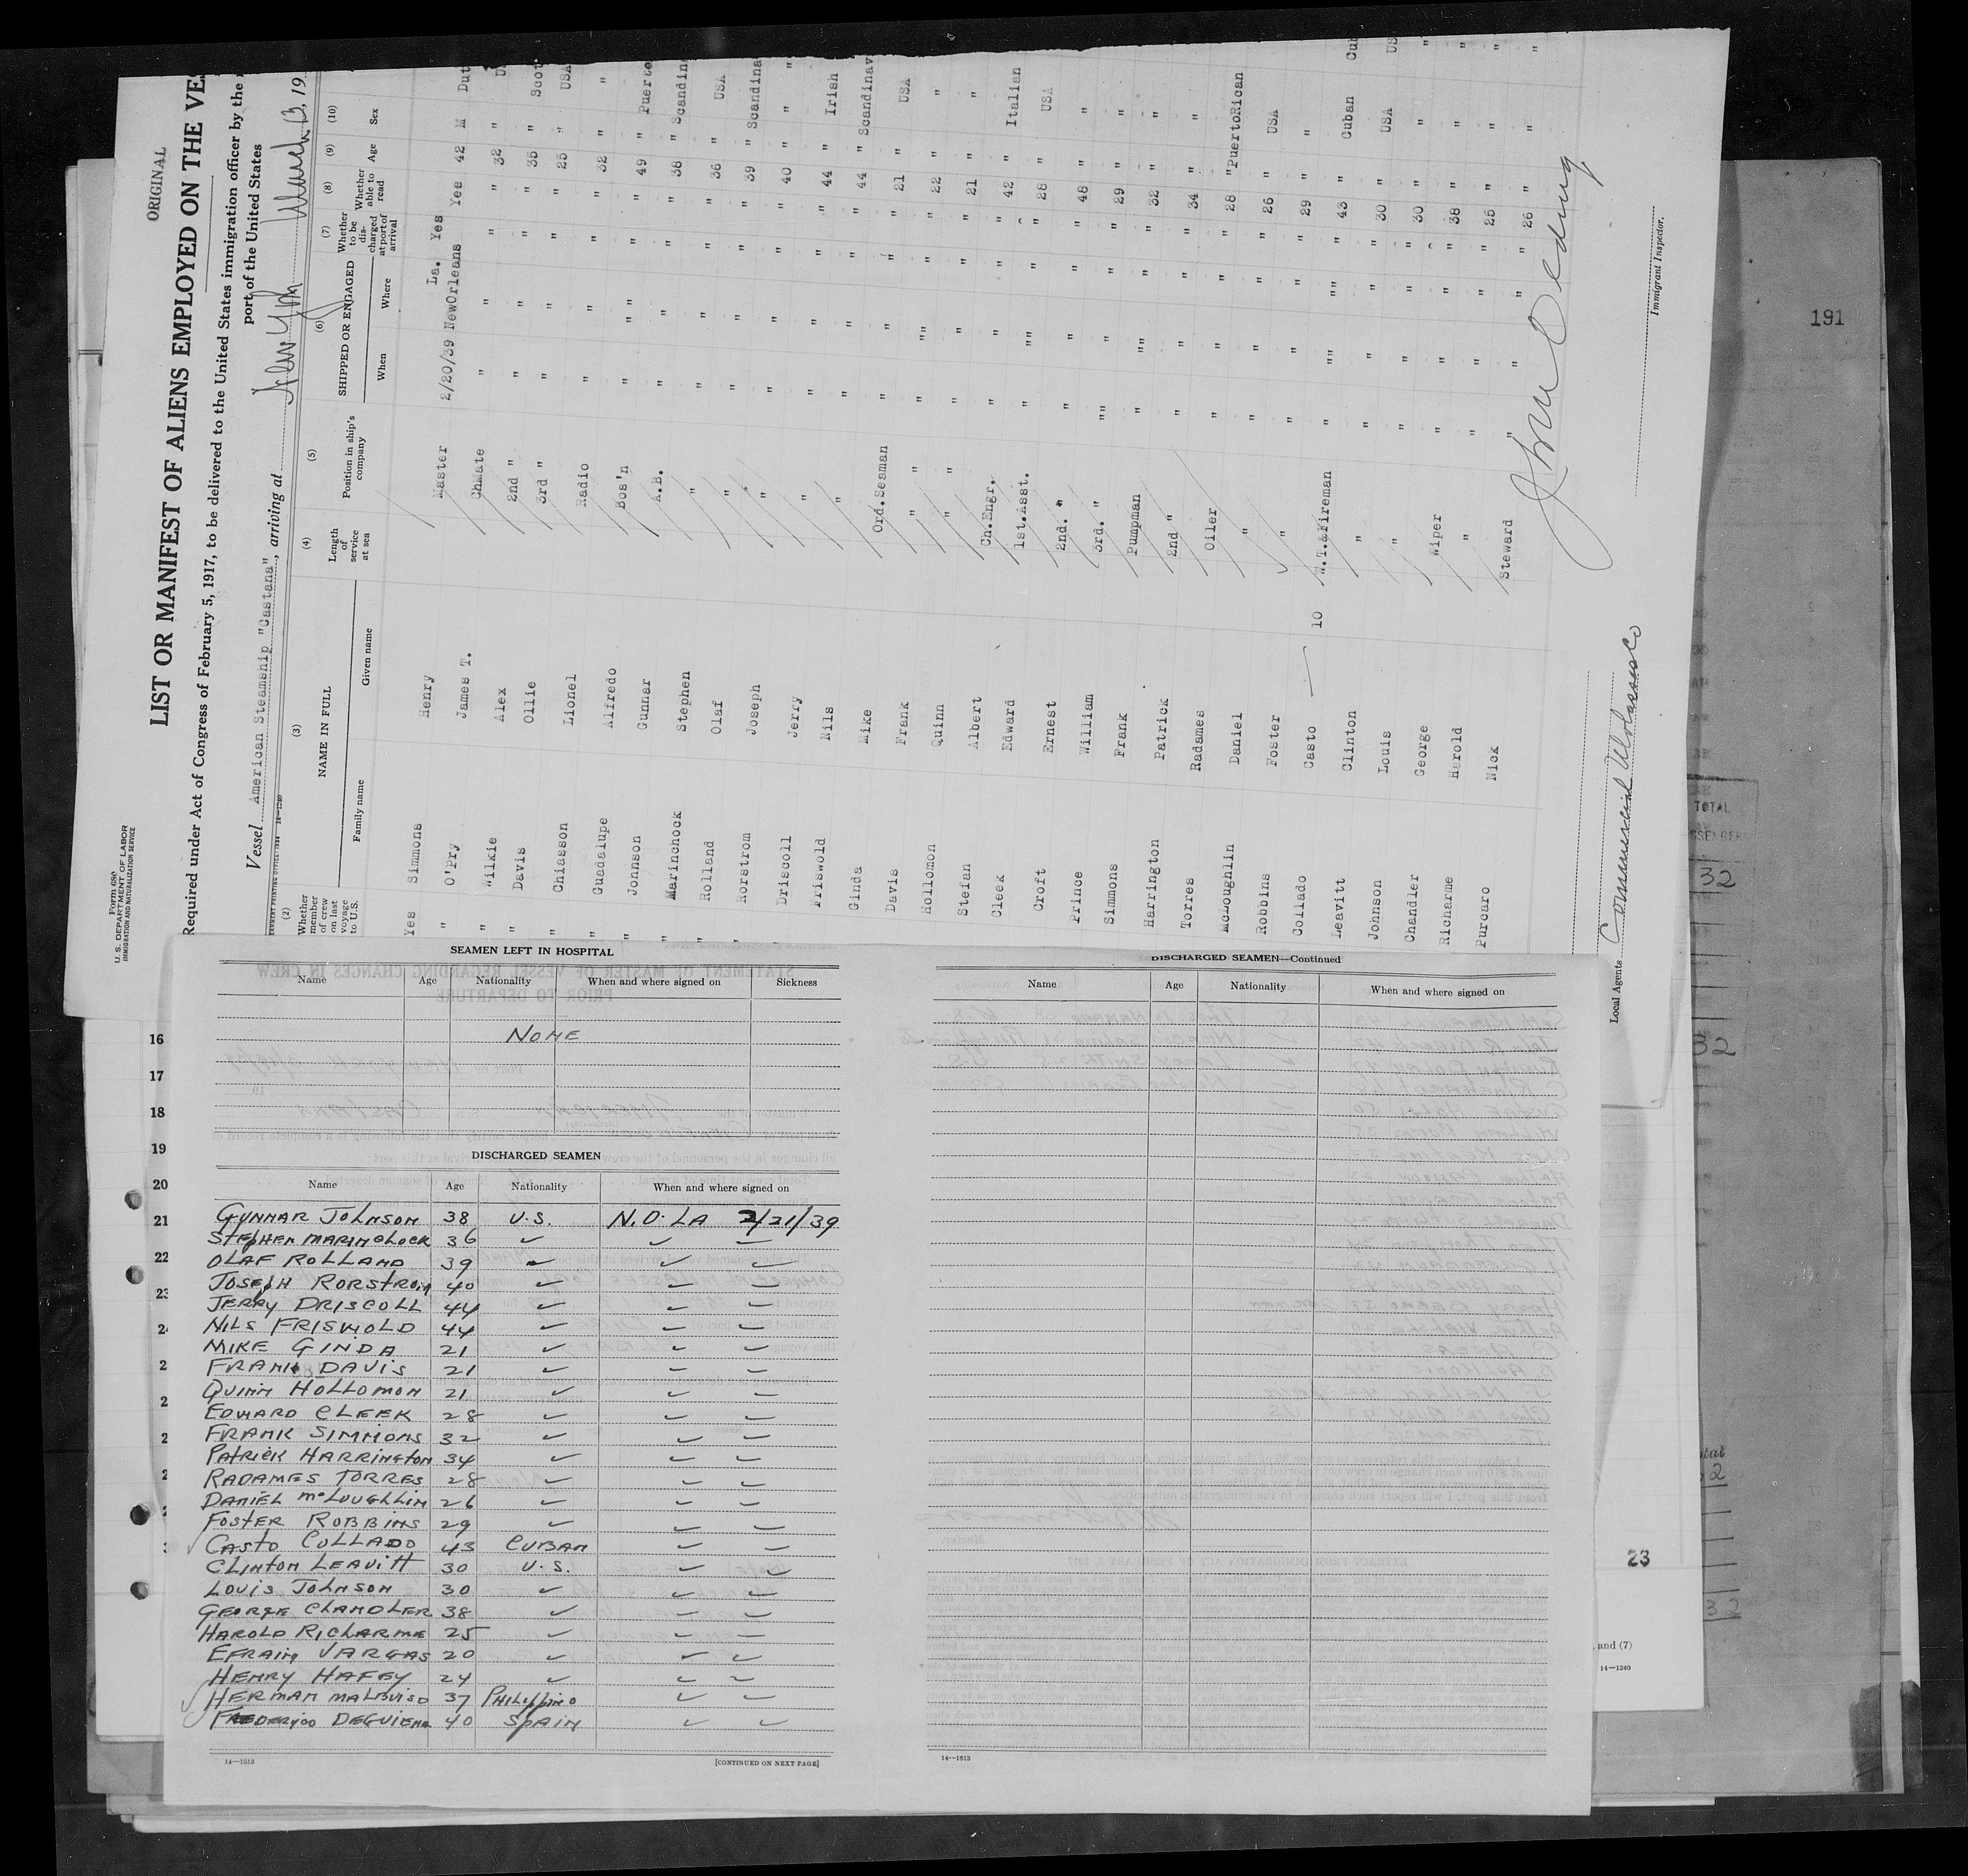 ORIGINAL
Form 680
U. S. DEPARTMENT OF LABOR
IMMIGRATION AND NATURALIZATION SERVICE
LIST OR MANIFEST OF ALIENS EMPLOYED ON THE
Required under Act of Congress of February 5, 1917, to be delivered to the United States immigration officer by the
port of the United States
Vessel American Steamship "Castana", arriving at New York March 13, 19
(2) (3) (4) (5) (6) (7) (8) (9) (10)
Whether member of crew on last voyage to U.S.
NAME IN FULL
Family name Given name
Length of service at sea
Position in ship's company
SHIPPED OR ENGAGED
When Where
Whether to be discharged at port of arrival
Whether able to read
Age
Sex
Yes Simmons Henry Master 2/20/39 NewOrleans La. Yes Yes 42 M
" O'Pry James T. ChMate " " " " 32 "
" Wilkie Alex 2nd " " " " " 35 "
" Davis Ollie 3rd " " " " " 25 "
" Chiasson Lionel Radio " " " " 32 "
" Guadalupe Alfredo Bos'n " " " " 49 "
" Johnson Gunnar A.B. " " " " 38 "
" Marinchock Stephen " " " " " 36 "
" Rolland Olaf " " " " " 39 "
" Rorstrom Joseph " " " " " 40 "
Driscoll Jerry " " " " " 44 " Irish
Friswold Nils " " " " " 44 "
Ginda Mike " " " " " 21 " USA
Davis Frank Ord.Seaman " " " " 22 " "
Hollomon Quinn " " " " " 21 " "
Stefan Albert " " " " " 42 " Italian
Cleek Edward Ch.Engr. " " " " 28 " USA
Croft Ernest 1st.Asst. " " " " 48 " "
Prince William 2nd. " " " " " 29 " "
Simmons Frank 3rd. " " " " " 32 " "
Harrington Patrick Pumpman " " " " 34 " "
Torres Radames 2nd " " " " " 28 " PuertoRican
McLoughlin Daniel Oiler " " " " 26 " USA
Robbins Foster " " " " " 29 " "
Collado Casto " " " " " 43 " Cuban
Leavitt Clinton 10 W.T.&Fireman " " " " 30 " USA
Johnson Louis " " " " " 30 " "
Chandler George " " " " " 38 " "
Richarme Harold Wiper " " " " 25 " "
Purcaro Nick " " " " " 26 " "
Steward
Immigrant Inspector.
Local Agents Commercial Molasses Co
191
TOTAL
32
32
16
17
18
19
20
21
22
23
, and (7)
14—1240
SEAMEN LEFT IN HOSPITAL
Name Age Nationality When and where signed on Sickness
NONE
DISCHARGED SEAMEN
Name Age Nationality When and where signed on
GUNNAR JOHNSON 38 U.S. N.O. LA 2/21/39
STEPHEN MARINCHOCK 36
OLAF ROLLAND 39
JOSEPH RORSTROM 40
JERRY DRISCOLL 44
NILS FRISWOLD 44
MIKE GINDA 21
FRANK DAVIS 21
QUINN HOLLOMON 21
EDWARD CLEEK 28
FRANK SIMMONS 32
PATRICK HARRINGTON 34
RADAMES TORRES 28
DANIEL McLOUGHLIN 26
FOSTER ROBBINS 29
CASTO COLLADO 43 CUBAN
CLINTON LEAVITT 30 U.S.
LOUIS JOHNSON 30
GEORGE CHANDLER 38
HAROLD RICHARME 25
EFRAIN VARGAS 20
HENRY HAFEY 24
HERMAN 37 PHILIPPINO
40 SPAIN
14—1613 [CONTINUED ON NEXT PAGE]
DISCHARGED SEAMEN—Continued
Name Age Nationality When and where signed on
14—1613
23